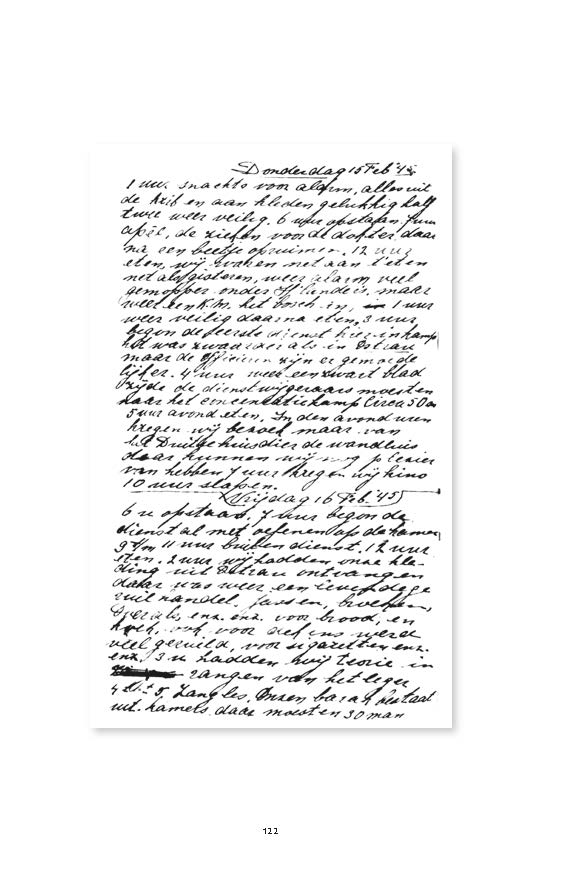 Donderdag 15 Feb '45
1 uur snachts voor alarm, alles uit
de krib en aan kleden gelukkig half
twee weer veilig. 6 uur opstaan 7 uur
apèl, de zieken voor de dokter, daar
na een beetje opruimen. 12 uur
eten, wij waren net aan 't eten
net als gisteren, weer alarm veel
gemopper onder Hollanders, maar
weer een K.M. het bosch in, 1 uur
weer veilig daarna eten, 3 uur
begon de eerste dienst hier in kamp
het was zwaarder als in
maar de officieren zijn er gemoede
lijker. 4 uur weer een zwart blad
zijde de dienstweigeraars moesten
naar het concentratiekamp Circa 50 m
5 uur avond eten. In den avond uren
kregen wij bezoek maar van
het Duitse huisdier de wandluis
daar kunnen wij nog plezier
van hebben 7 uur kregen wij kino
10 uur slapen.
Vrijdag 16 Feb. '45
6 u opstaan, 7 uur begon de
dienst al met oefenen op de kamer
9 t/m 11 uur buiten dienst. 12 uur
eten. 2 uur wij hadden onze kle-
ding uit ontvangen
daar was weer een levendige
ruil handel. jassen, broeken,
Overals, enz. enz. voor brood, en
koek, ook voor ons werd
veel geruild, voor sigaretten enz.
enz. 3 u hadden wij teorie in
rangen van het leger
4 tot 5 Zangles, Onzen barak bestaat
uit kamers daar moesten 30 man
122